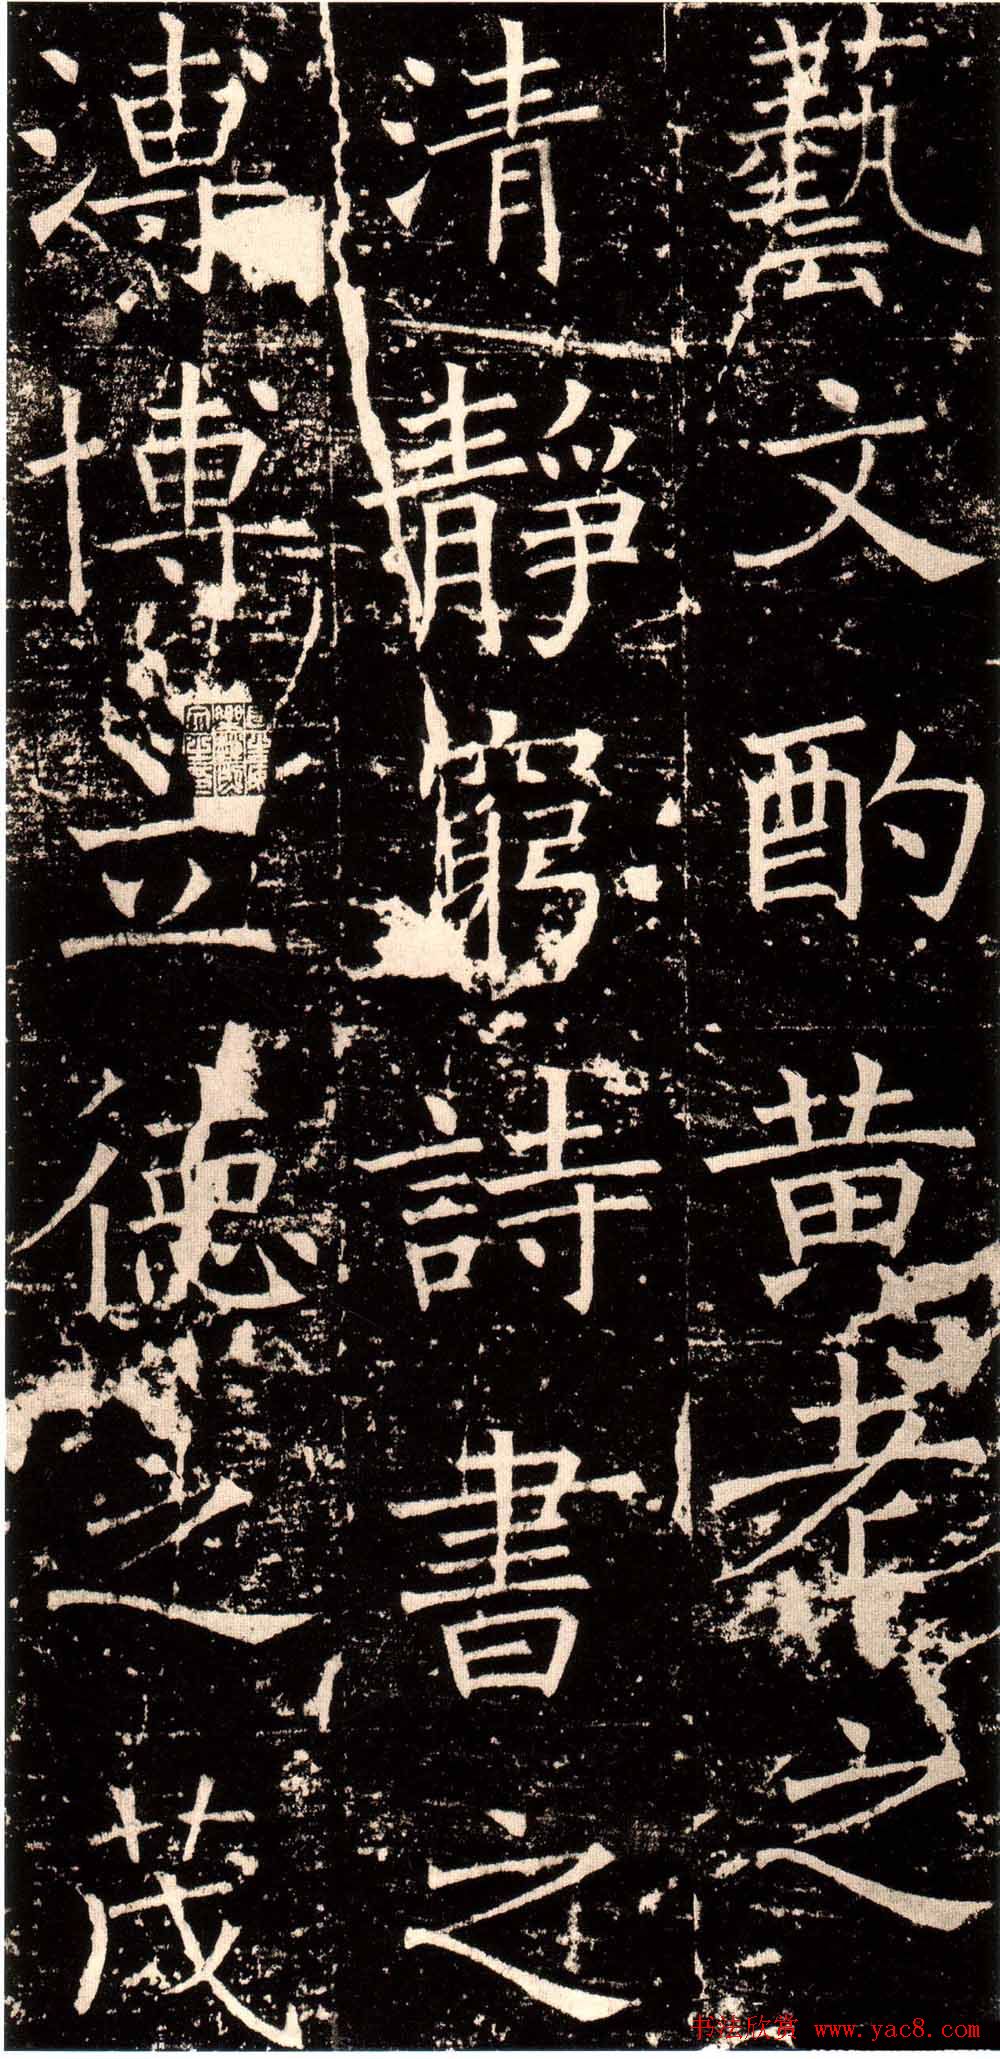 藝文酌黃老之
清靜窮詩書之
溥博立德之茂
书法欣赏 www.yac8.com